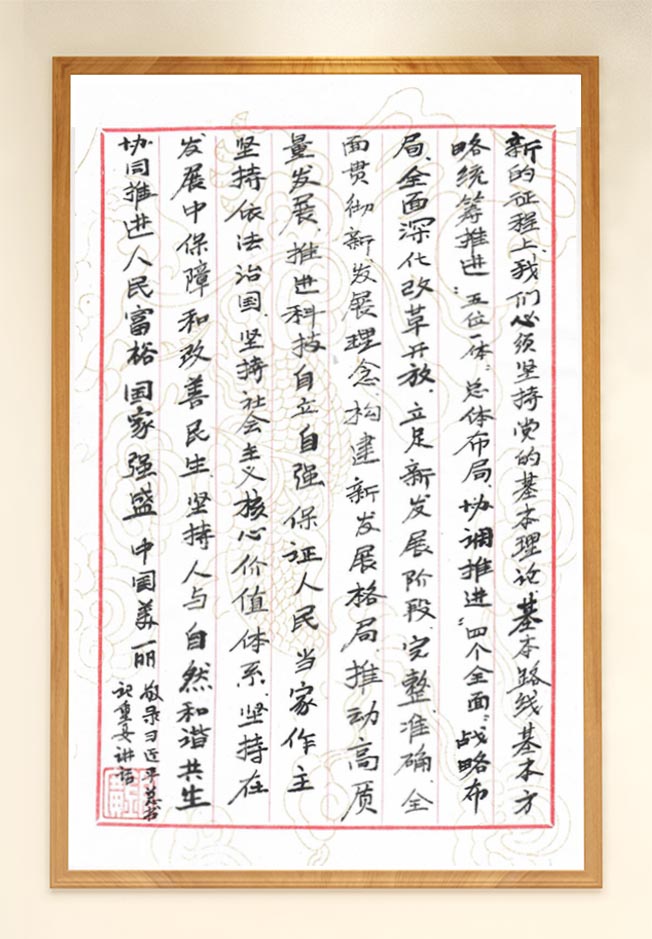 新的征程上，我们必须坚持党的基本理论、基本路线、基本方
略，统筹推进“五位一体”总体布局、协调推进“四个全面”战略布
局，全面深化改革开放，立足新发展阶段，完整、准确、全
面贯彻新发展理念，构建新发展格局，推动高质
量发展，推进科技自立自强，保证人民当家作主，
坚持依法治国，坚持社会主义核心价值体系，坚持在
发展中保障和改善民生，坚持人与自然和谐共生，
协同推进人民富裕、国家强盛、中国美丽
敬录习近平总书
记重要讲话